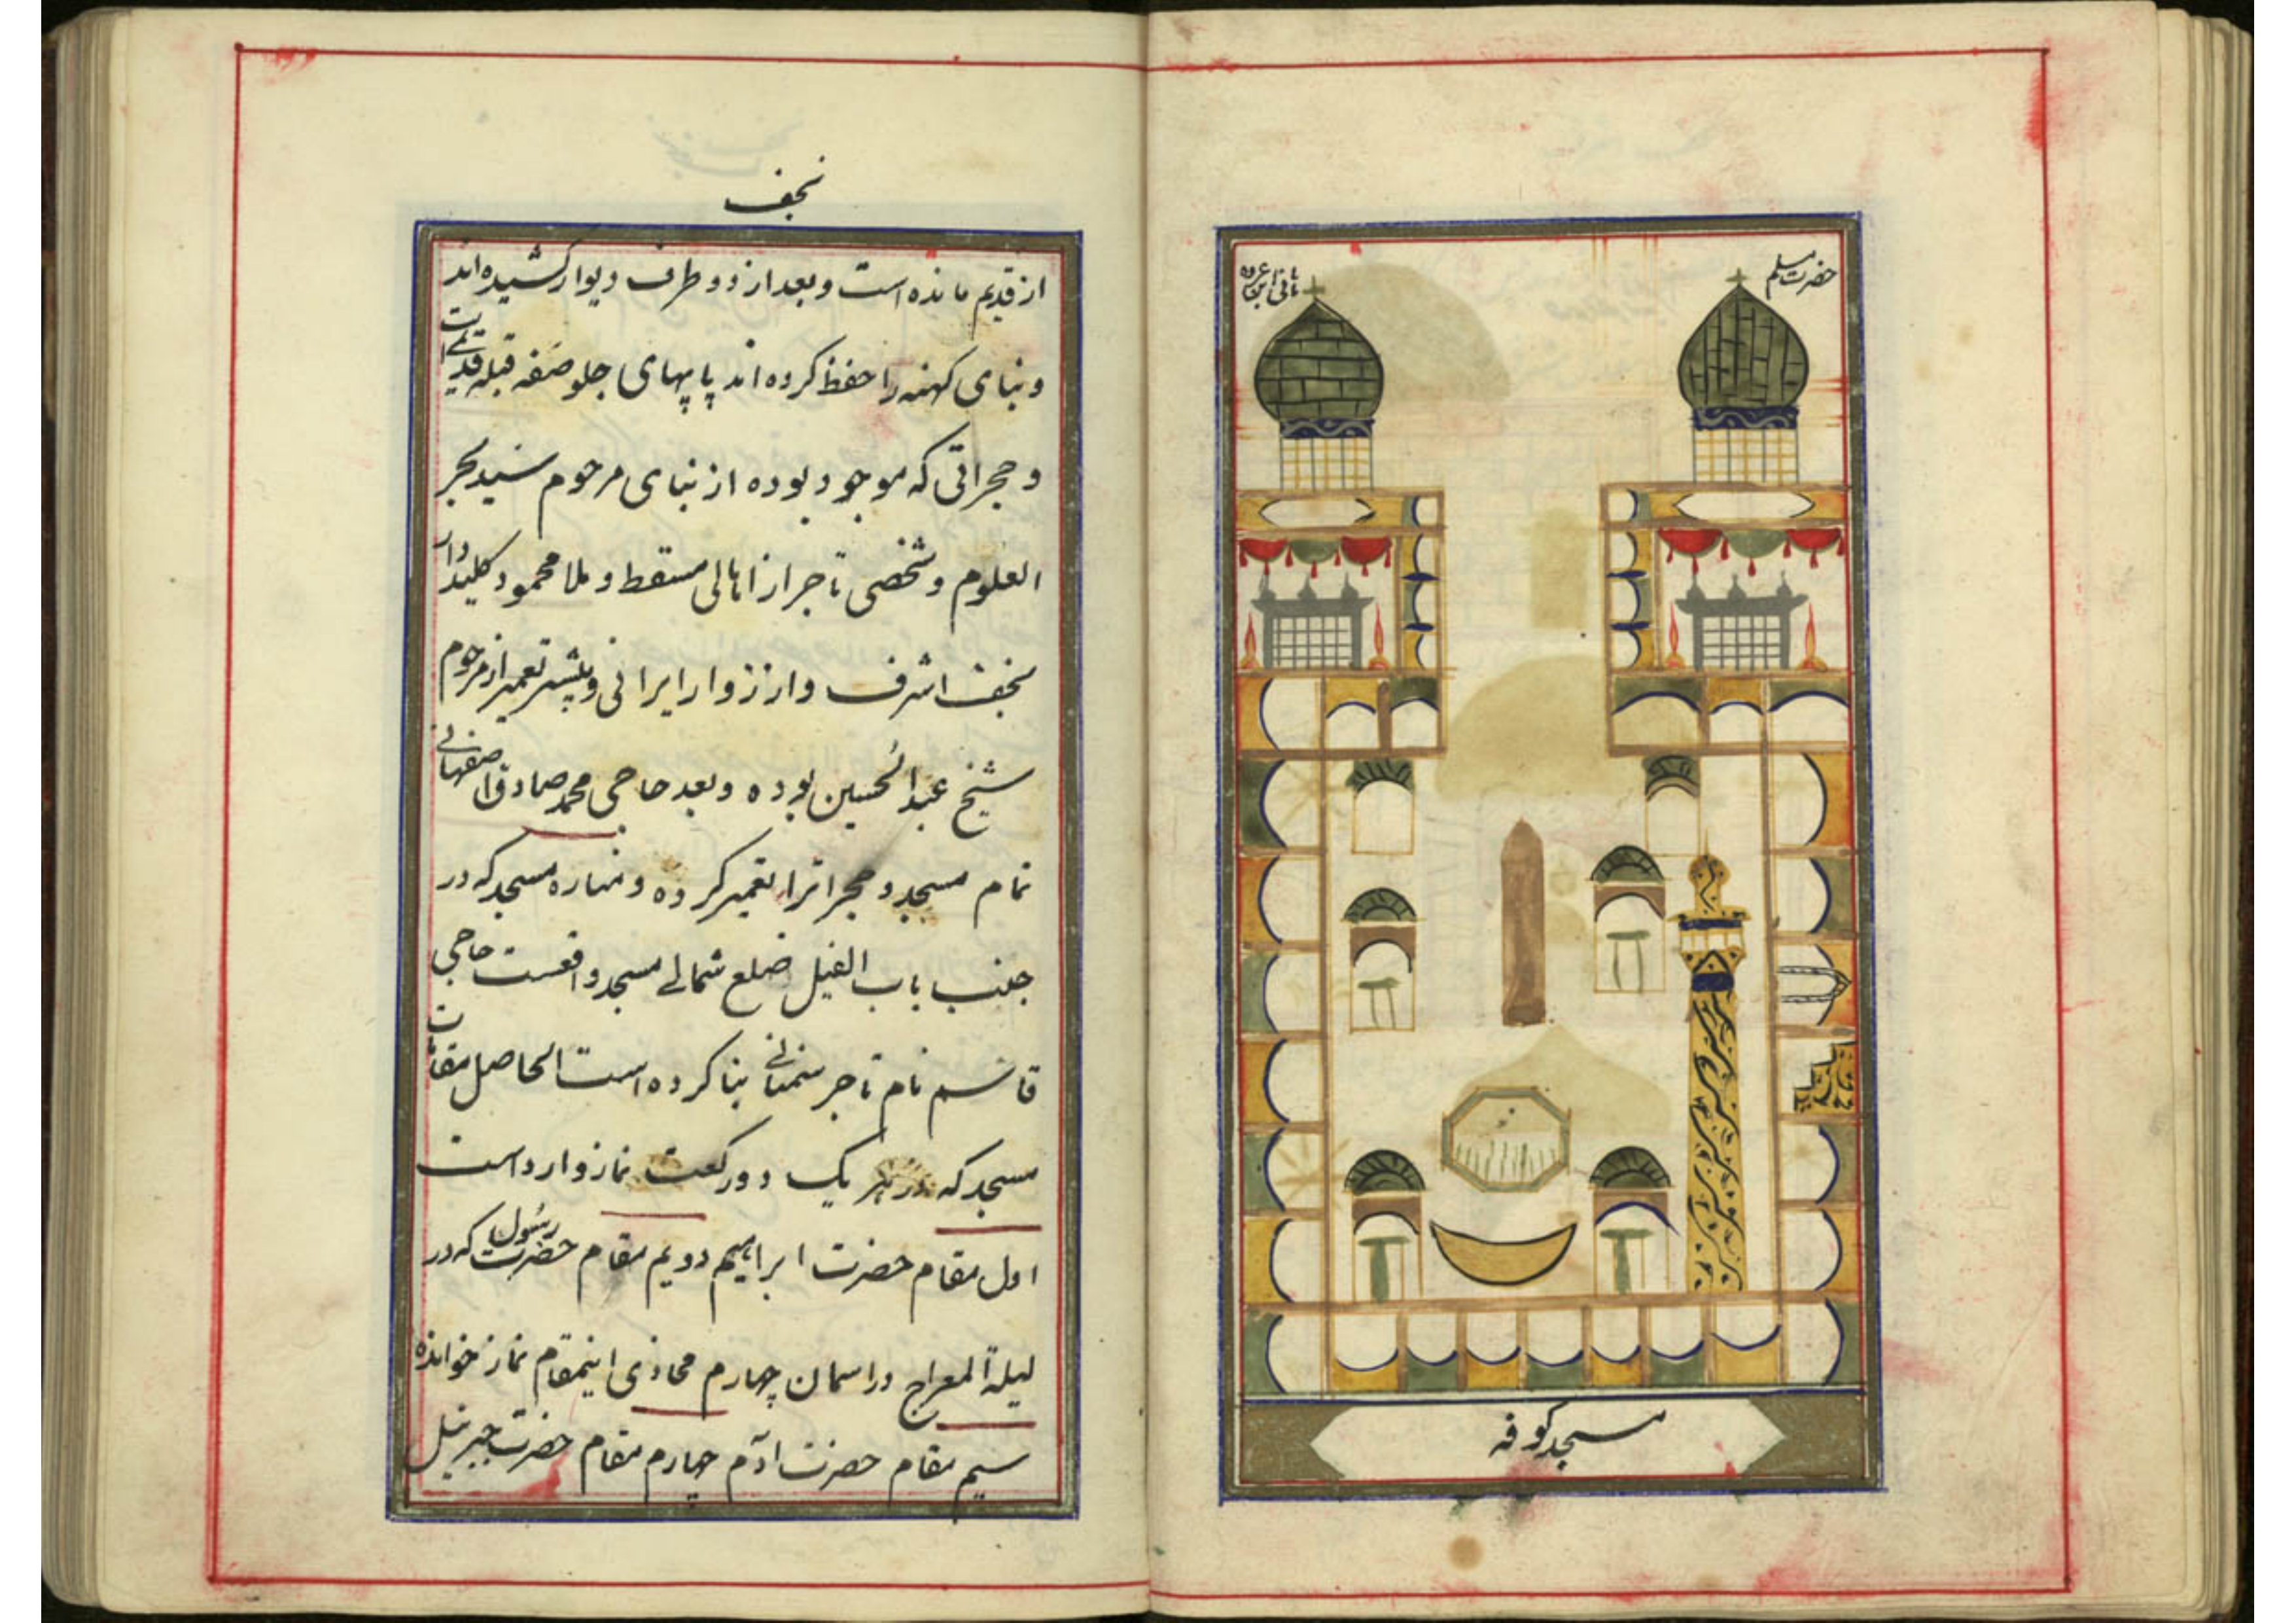 حضرت مسلم
هانی ابن عروه
مسجد کوفه
نجف
از قدیم مانده است و بعد از دو طرف دیوار کشیده اند
و بنای کهنه را حفظ کرده اند پاپهای جلو صفه قبله قدیمی است
و حجراتی که موجود بوده از بنای مرحوم سید بحر
العلوم و شخصی تاجر از اهالی مسقط و ملا محمود کلیددار
نجف اشرف و از زوار ایرانی و پیشتر تعمیر از مرحوم
شیخ عبدالحسین بوده و بعد حاجی محمد صادق اصفهانی
تمام مسجد و حجراترا تعمیر کرده و مناره مسجد که در
جنب باب الفیل ضلع شمالی مسجد واقعست حاجی
قاسم نام تاجر سمنانی بنا کرده است الحاصل مقامات
مسجد که در هر یک دو رکعت نماز وارد است
اول مقام حضرت ابراهیم دویم مقام حضرت رسول که در
لیلة المعراج در اسمان چهارم محاذی اینمقام نماز خوانده
سیم مقام حضرت آدم چهارم مقام حضرت جبرئیل